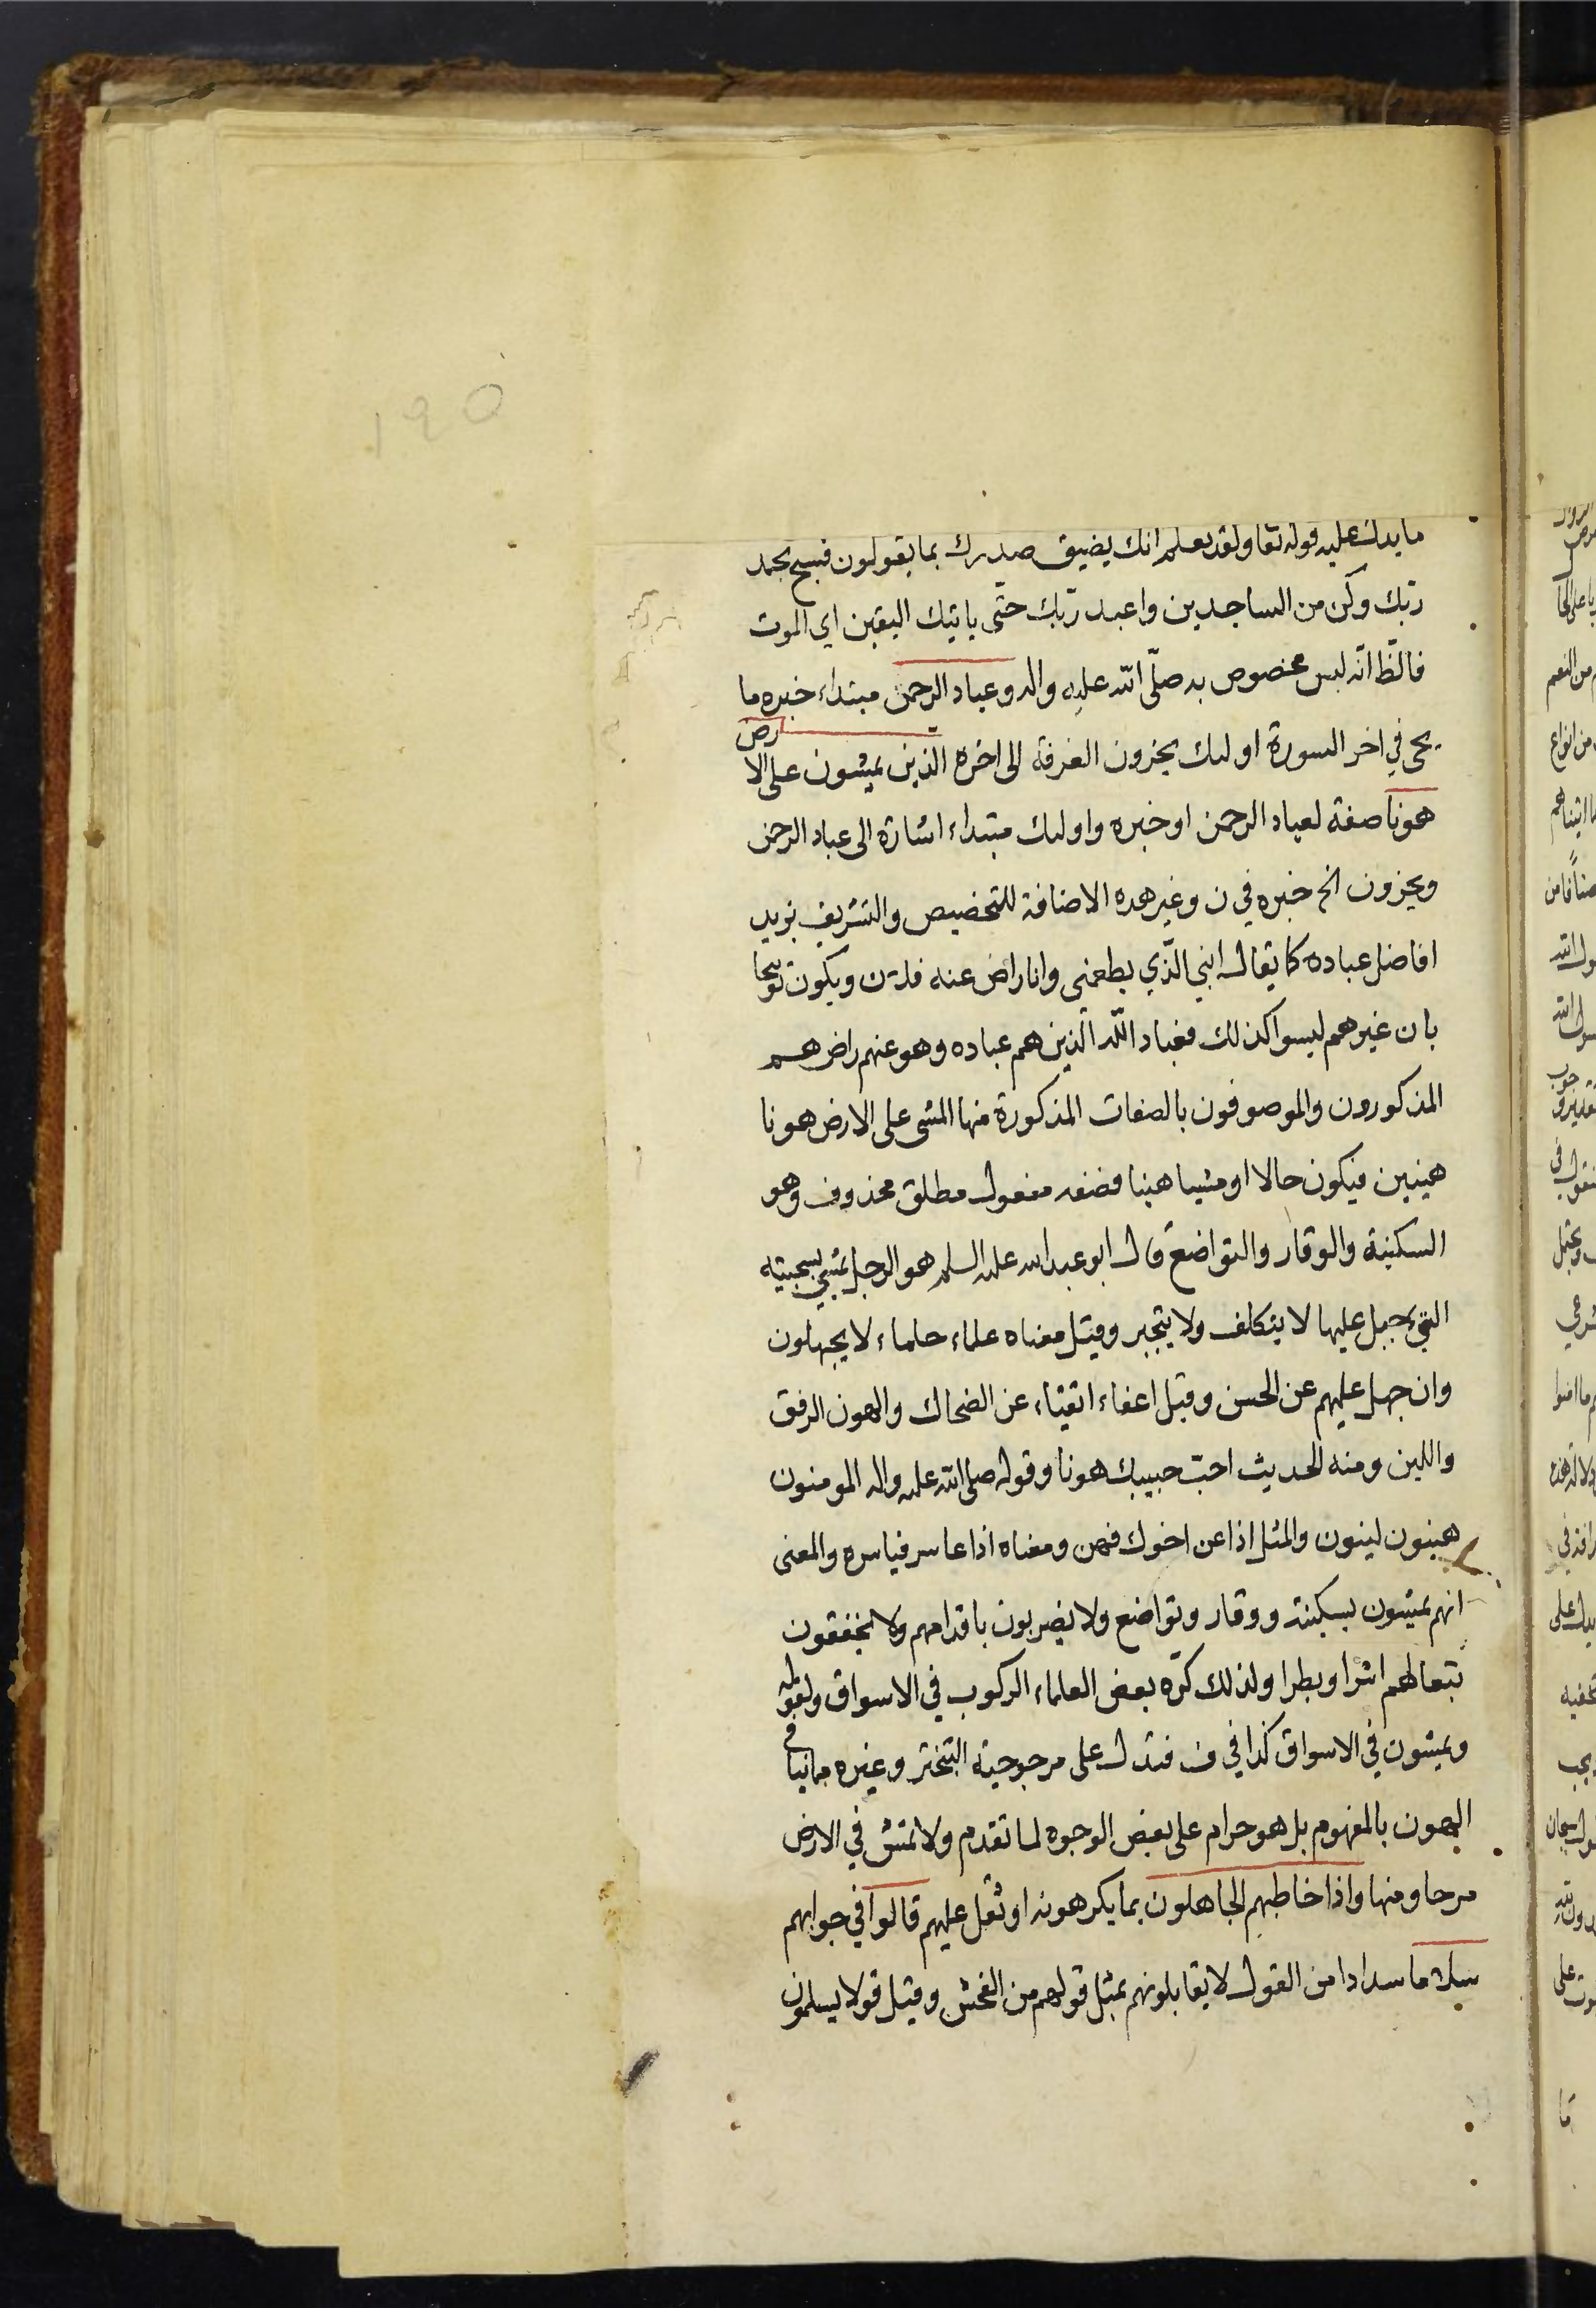 ١٩٥
ما يدل عليه قوله تعا ولقد نعلم انك يضيق صدرك بما يقولون فسبح بحمد
ربّك وكن من الساجدين واعبد ربّك حتّى ياتيك اليقين اى الموت
فالظّ انّه ليس مخصوص به صلّى اللّه عليه واله وعباد الرحمن مبتداء خبره ما
يجئ في اخر السورة اولئك يجزون الغرفة الى اخره الذين يمشون على الارض
هونا صفة لعباد الرحمن او خبره واولئك مبتداء اشارة الى عباد الرحمن
ويجزون الخ خبره في ن وغير هده الاضافة للتخصيص والتشريف نريد
افاضل عباده كما يقال ابني الّذي يطعني وانا راض عنه فلان ويكون توبيخا
بان غيرهم ليسوا كذلك فعباد اللّه الذين هم عباده وهو عنهم راض هم
المذكورون والموصوفون بالصفات المذكورة منها المشى على الارض هونا
هينين فيكون حالا او مشيا هينا فصفه مفعول مطلق محذوف وهو
السكينة والوقار والتواضع قال ابو عبد الله عليه السلم هو الرجل يمشي بسجيته
التي جبل عليها لا يتكلف ولا يتجبر وقيل معناه علماء حلماء لا يجهلون
وان جهل عليهم عن الحسن وقيل اعفاء اتقياء عن الضحاك والهون الرفق
واللين ومنه الحديث احبّ حبيبك هونا وقوله صلى اللّه عليه واله المومنون
هينون لينون والمثل اذا عن اخوك فهن ومعناه اذا عاسر فياسره والمعنى
انهم يمشون بسكينة ووقار وتواضع ولا يضربون باقدامهم ولا يخفقون
بنعالهم اشرا وبطرا ولذلك كرّه بعض العلماء الركوب في الاسواق ولقوله
ويمشون في الاسواق كذا في ف فتدل على مرجوحية التبختر وغيره مما ينافي
الهون بالمفهوم بل هو حرام على بعض الوجوه لما تقدم ولا تمش في الارض
مرحا ومنها واذا خاطبهم الجاهلون بما يكرهونه او ثقل عليهم قالوا في جوابهم
سلاما سدادا من القول لا يقابلونهم بمثل قولهم من الفحش وقيل قولا يسلمون